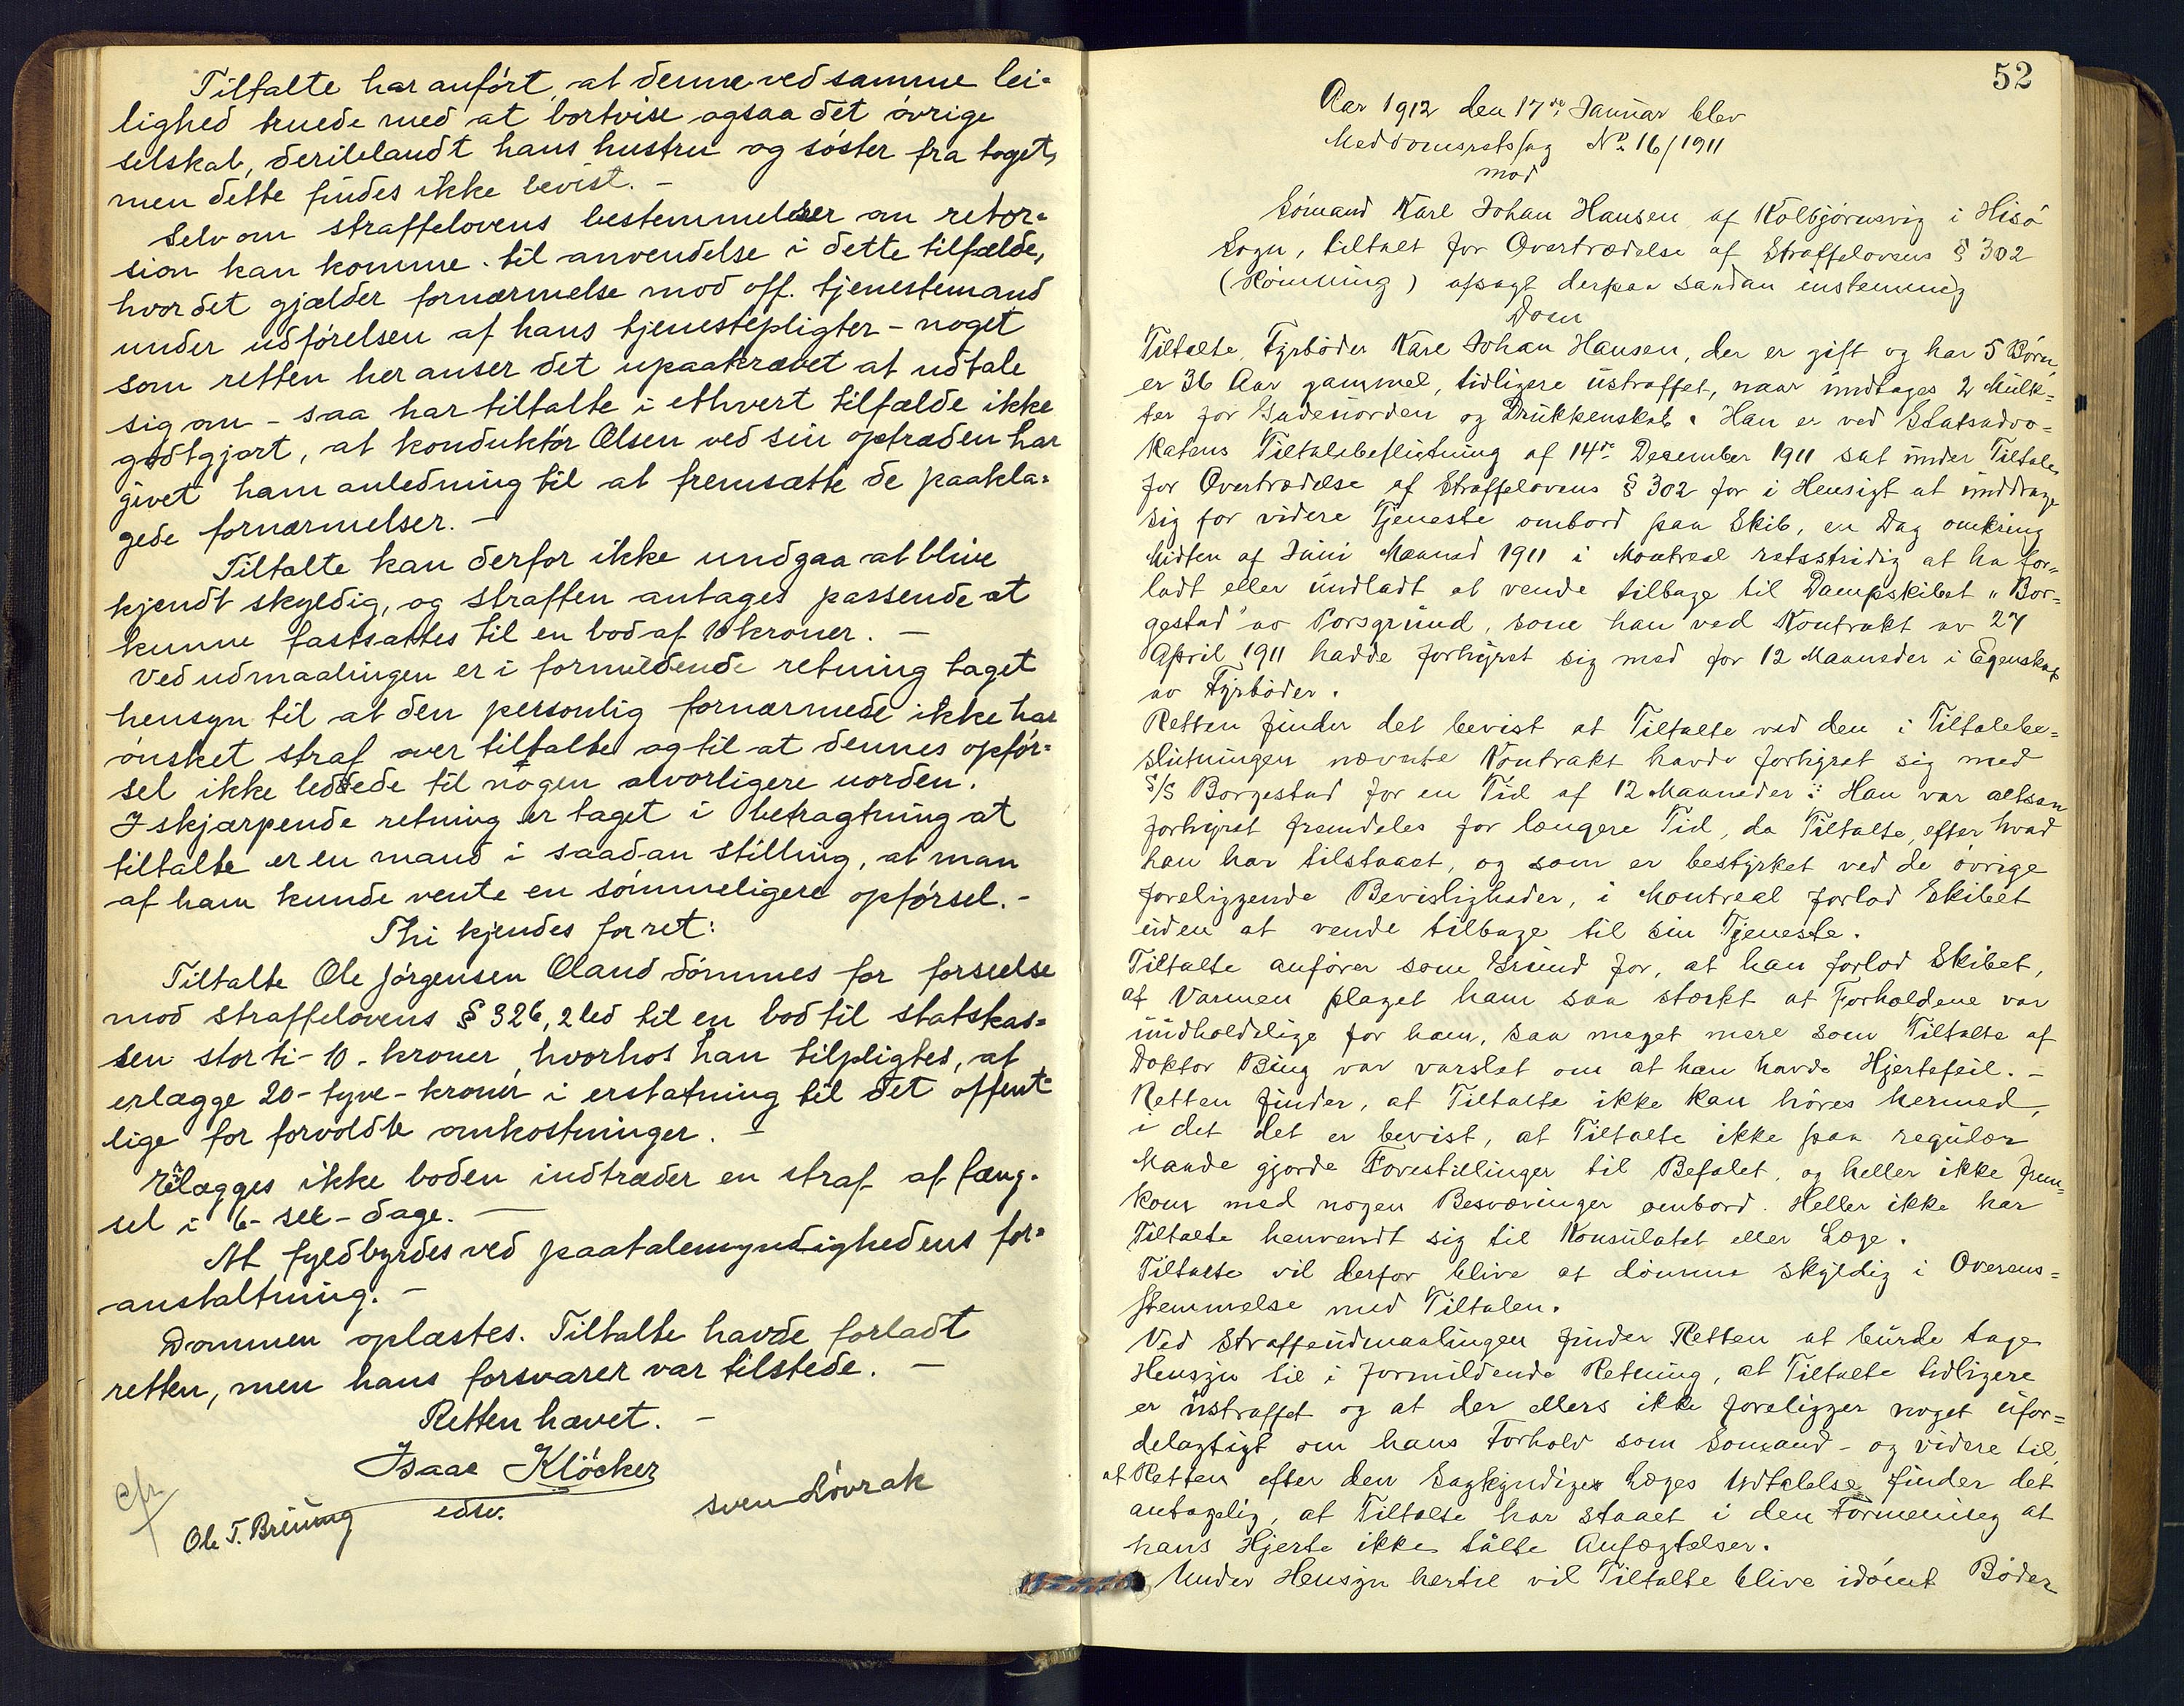 Tiltalte har anført, at denne ved samme lei-
lighed truede med at bortvise ogsaa det øvrige
selskab, deriblandt hans hustru og søster fra toget,
men dette findes ikke bevist. -
Selv om straffelovens bestemmelser om retor-
sion kan komme til anvendelse i dette tilfælde,
hvor det gjælder fornærmelse mod off. tjenestemand
under udførelsen af hans tjenestepligter - noget
som retten her anser det upaakrævet at udtale
sig om - saa har tiltalte i ethvert tilfælde ikke
godtgjort, at konduktør Olsen ved sin optræden har
givet ham anledning til at fremsætte de paakla-
gede fornærmelser. -
Tiltalte kan derfor ikke undgaa at blive
kjendt skyldig, og straffen antages passende at
kunne fastsættes til en bod af 10 kroner. -
Ved udmaalingen er i formildende retning taget
hensyn til at den personlig fornærmede ikke har
ønsket straf over tiltalte og til at dennes opfør-
sel ikke leddede til nogen alvorligere uorden.
I skjærpende retning er taget i betragtning at
tiltalte er en mand i saadan stilling, at man
af ham kunde vente en sømmeligere opførsel. -
Thi kjendes for ret:
Tiltalte Ole Jørgensen Oland dømmes for forseelse
mod straffelovens § 326, 2 led til en bod til statskas-
sen stor ti - 10 - kroner, hvorhos han tilpligtes, at
erlægge 20 - tyve - kroner i erstatning til det offent-
lige for forvoldte omkostninger. -
Erlægges ikke boden indtræder en straf af fæng-
sel i 6 - sex - dage. -
At fyldbyrdes ved paatalemyndighedens for-
anstaltning. -
Dommen oplæstes. Tiltalte havde forladt
retten, men hans forsvarer var tilstede. -
Retten hævet. -
Isaac Kløcker
edsv.
Ole T. Breiung
Sven Løvrak
52
Aar 1912 den 17de Januar blev
Meddomsretssag No. 16/1911
mod
Sømand Karl Johan Hansen af Kolbjørnsvig i Hisø
Sogn, tiltalt for Overtrædelse af Straffelovens § 302
(Rømning) afsagt derpaa saadan enstemmig
Dom
Tiltalte, Fyrbøder Karl Johan Hansen, der er gift og har 5 Børn,
er 36 Aar gammel, tidligere ustraffet, naar undtages 2 Mulk-
ter for Gadeuorden og Drukkenskab. Han er ved Statsadvo-
katens Tiltalebeslutning af 14de Desember 1911 sat under Tiltale
for Overtrædelse af Straffelovens § 302 for i Hensigt at unddrage
sig for videre Tjeneste ombord paa Skib, en Dag omkring
Midten af Juni Maaned 1911 i Montreal retsstridig at ha for-
ladt eller undladt at vende tilbage til Dampskibet "Bor-
gestad" av Porsgrund, som han ved Kontrakt av 27
April 1911 hadde forhyret sig med for 12 Maaneder i Egenskab
av Fyrbøder.
Retten finder det bevist at Tiltalte ved den i Tiltalebe-
slutningen nævnte Kontrakt havde forhyret sig med
S/S Borgestad for en Tid af 12 Maaneder. Han var altsaa
forhyret fremdeles for længere Tid, da Tiltalte, efter hvad
han har tilstaaet, og som er bestyrket ved de øvrige
foreliggende Bevisligheder, i Montreal forlod Skibet
uden at vende tilbage til sin Tjeneste.
Tiltalte anfører som Grund for, at han forlod Skibet,
at Varmen plaget ham saa stærkt at Forholdene var
uudholdelige for ham, saa meget mere som Tiltalte af
Doktor Bing var varslet om at han havde Hjertefeil. -
Retten finder, at Tiltalte ikke kan høres hermed,
i det det er bevist, at Tiltalte ikke paa regulær
Maade gjorde Forestillinger til Befalet, og heller ikke frem-
kom med nogen Besværinger ombord. Heller ikke har
Tiltalte henvendt sig til Konsulatet eller Læge.
Tiltalte vil derfor blive at dømme skyldig i Overens-
stemmelse med Tiltalen.
Ved Straffeudmaalingen finder Retten at burde tage
Hensyn til i formildende Retning, at Tiltalte tidligere
er ustraffet og at der ellers ikke foreligger noget ufor-
delagtigt om hans Forhold som Sømand - og videre til,
at Retten efter den Sagkyndiges Læges Udtalelse finder det
antagelig, at Tiltalte har staaet i den Formening at
hans Hjerte ikke tålte Anfægtelser.
Under Hensyn hertil vil Tiltalte blive idømt Bøder